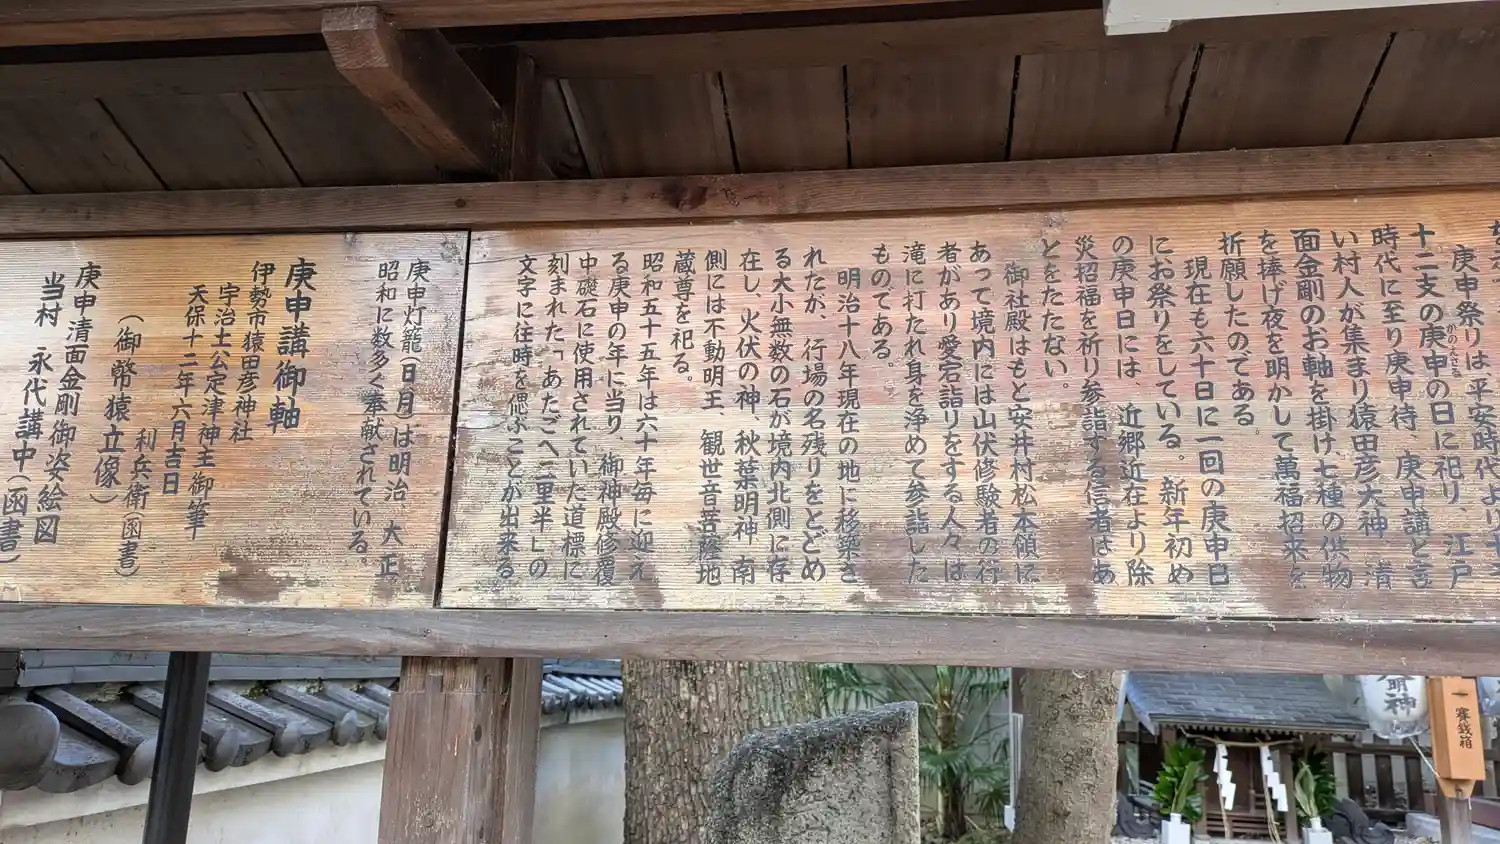 庚申祭りは平安時代より
十二支の庚申の日に祀り、江戸
かのえさる
時代に至り庚申待、庚申講と言
い村人が集まり猿田彦大神、清
面金剛のお軸を掛け七種の供物
を捧げ夜を明かして萬福招来を
祈願したのである。
現在も六十日に一回の庚申日
にお祭りをしている。新年初め
の庚申日には、近郷近在より除
災招福を祈り参詣する信者はあ
とをたたない。
御社殿はもと安井村松本領に
あって境内には山伏修験者の行
者があり愛宕詣りをする人々は
滝に打たれ身を浄めて参詣した
ものである。
明治十八年現在の地に移築さ
れたが、行場の名残りをとどめ
る大小無数の石が境内北側に存
在し、火伏の神、秋葉明神、南
側には不動明王、観世音菩薩、地
蔵尊を祀る。
昭和五十五年は六十年毎に迎え
る庚申の年に当り、御神殿修覆
中礎石に使用されていた道標に
刻まれた「あたごへ二里半」の
文字に往時を偲ぶことが出来る
庚申灯籠(日月)は明治、大正
昭和に数多く奉献されている。
庚申講御軸
伊勢市猿田彦神社
宇治土公定津神主御筆
天保十二年六月吉日
利兵衛(函書)
(御幣猿立像)
庚申清面金剛御姿絵図
当村 永代講中(函書)
明神
賽銭箱